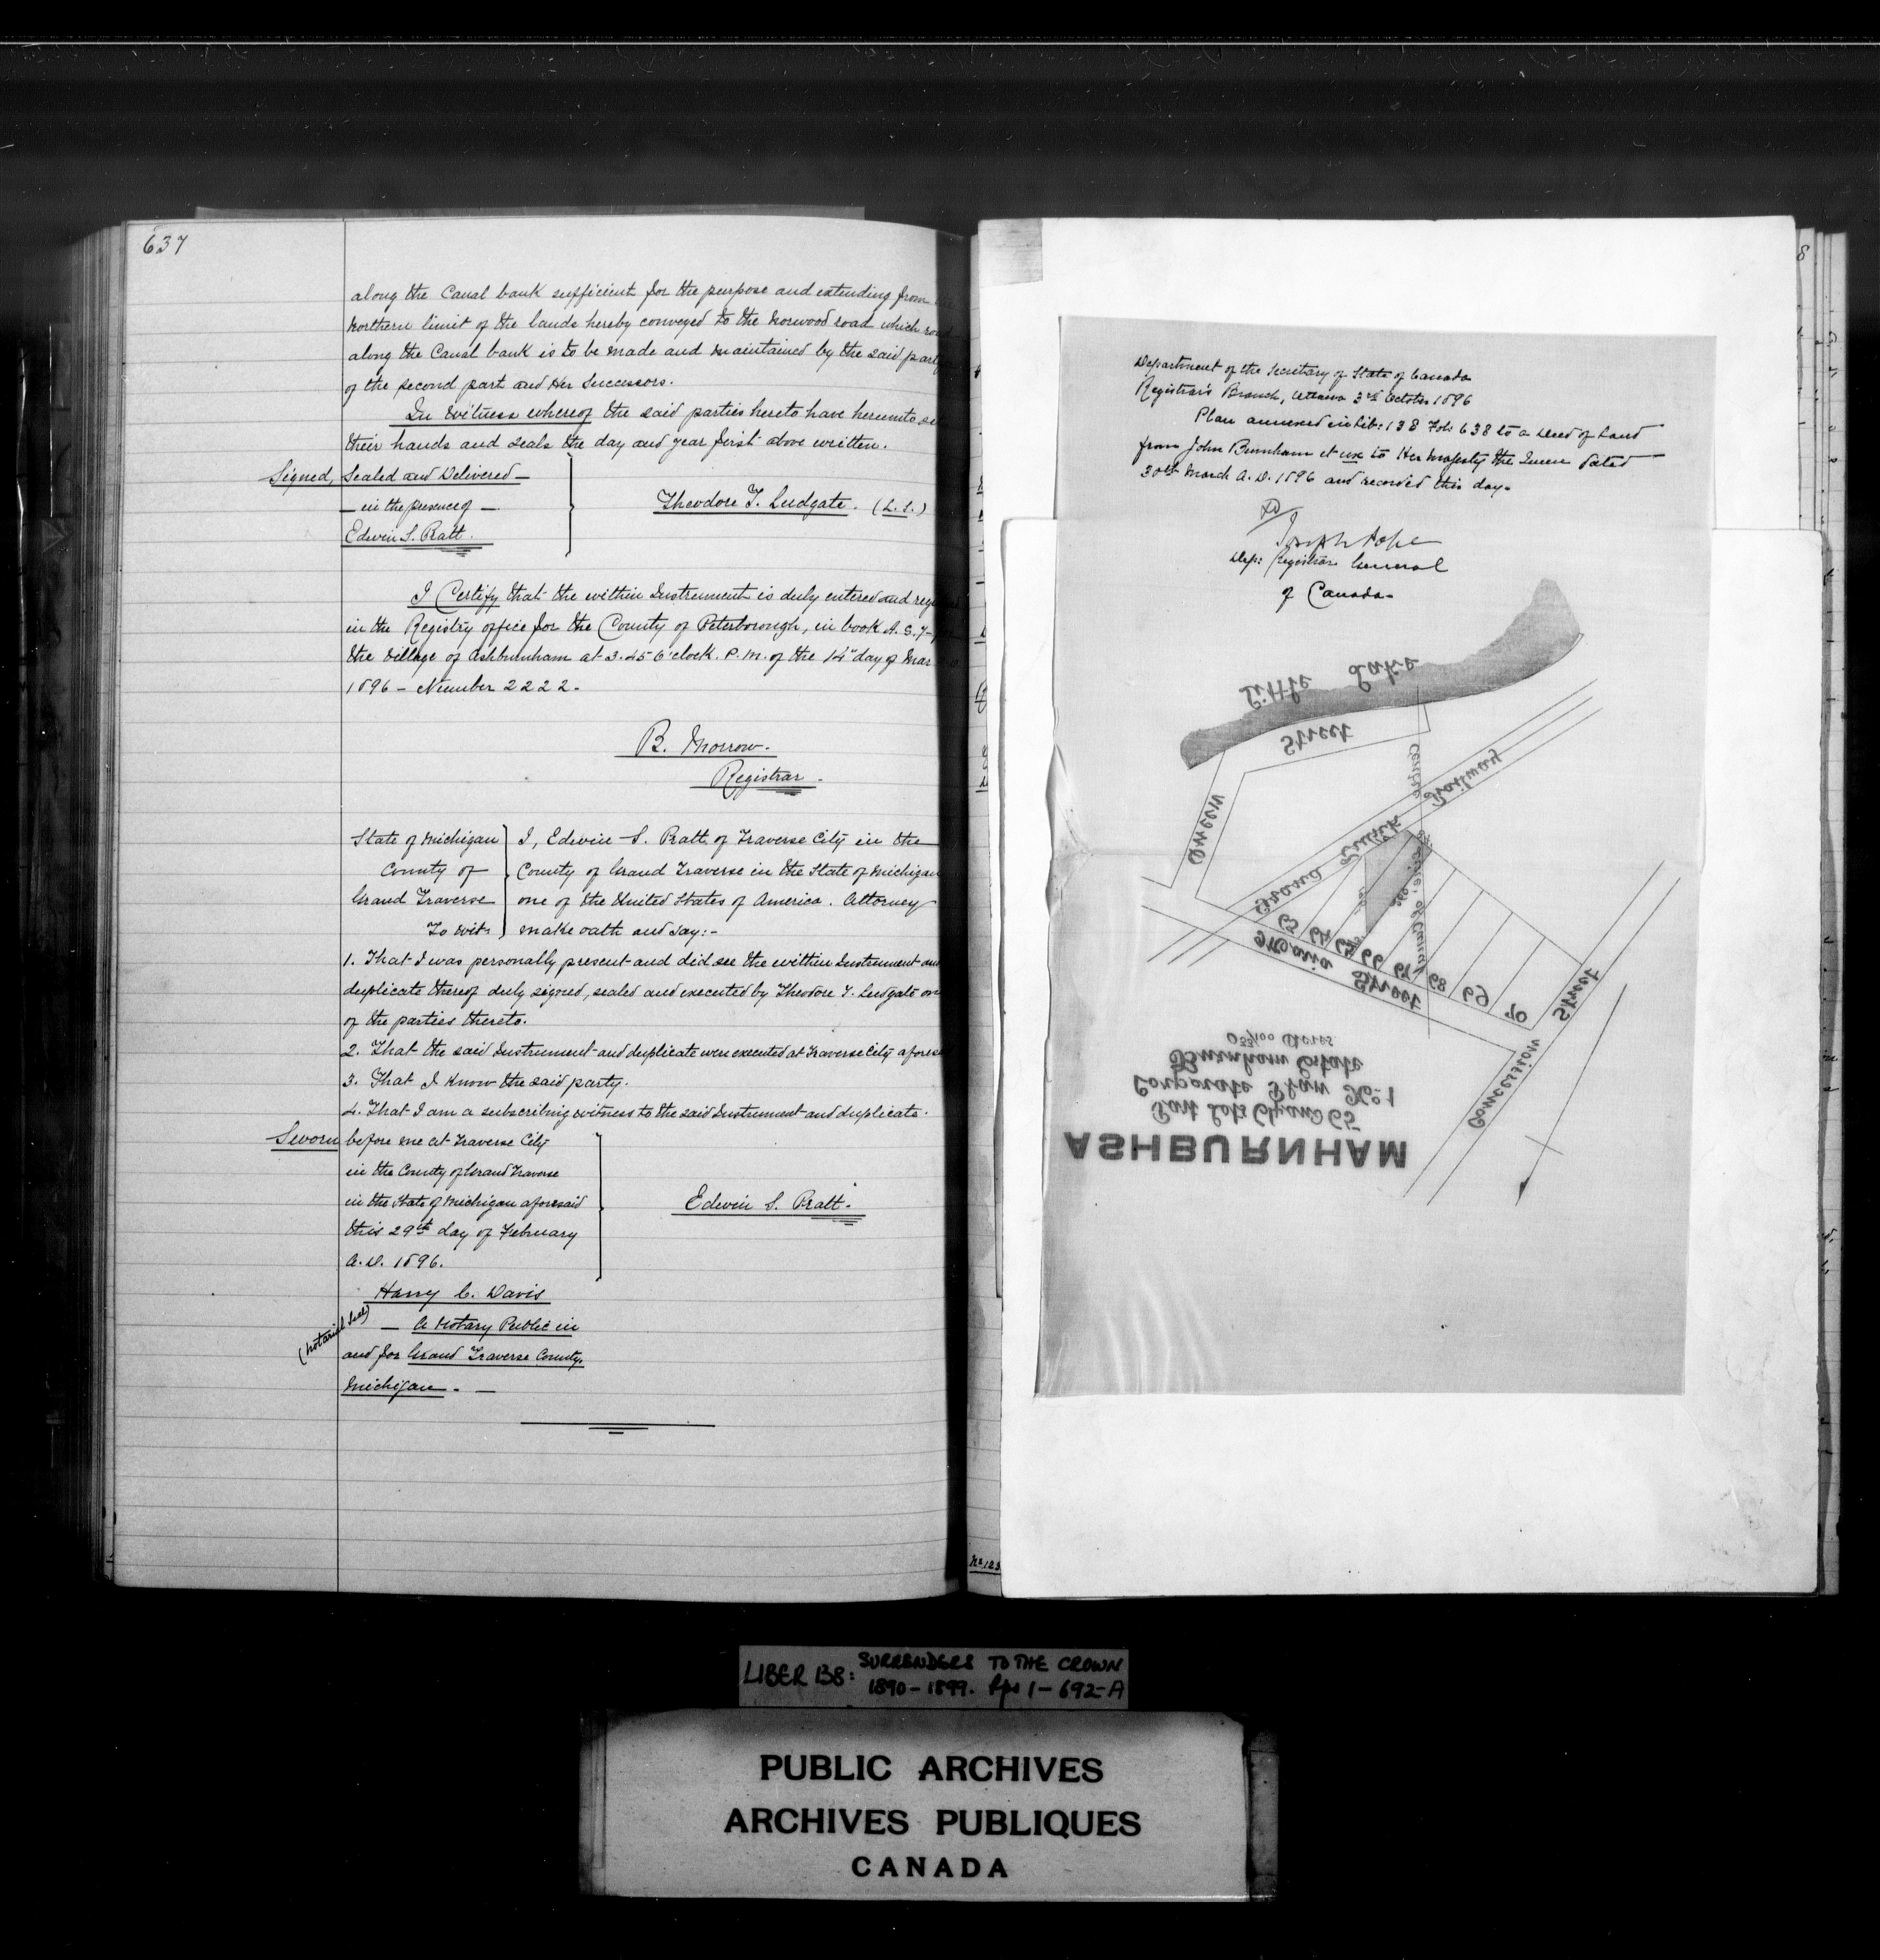 637
along the Canal bank sufficient for the purpose and extending from
Northern limit of the lands hereby conveyed to the Norwood road which
along the Canal bank is to be made and maintained by the said
of the second part and Her Successors.
In Witness whereof the said parties hereto have hereunto
their hands and seals the day and year first above written.
Signed, Sealed and Delivered
in the presence of
Edwin S. Pratt.
Theodore T. Ludgate. (L.S.)
I Certify that the within Instrument is duly entered and
in the Registry office for the County of Peterborough, in book A. S. 7
the Village of Ashburnham at 3.45 O'clock. P.M. of the 14" day of Mar
1896 - Number 2222.
B. Morrow.
Registrar.
State of Michigan
County of
Grand Traverse
To wit:
I, Edwin S. Pratt of Traverse City in the
County of Grand Traverse in the State of Michigan
one of the United States of America. Attorney
make oath and say:-
1. That I was personally present and did see the within Instrument and
duplicate thereof duly signed, sealed and executed by Theodore T. Ludgate
of the parties thereto.
2. That the said Instrument and duplicate were executed at Traverse City
3. That I know the said party.
4. That I am a subscribing witness to the said Instrument and duplicate.
Sworn before me at Traverse City
in the County of Grand Traverse
in the State of Michigan aforesaid
this 29th day of February
A.D. 1896.
Edwin S. Pratt.
Harry C. Davis
(Notarial Seal)
- A Notary Public in
and for Grand Traverse County,
Michigan. -
Department of the Secretary of State of Canada
Registrar's Branch, Ottawa 3rd October 1896
Plan annexed in Lib: 138 Fol: 638 to a Deed of Land
from John Burnham et ux to Her Majesty the Queen dated
30th March A.D. 1896 and recorded this day.
Joseph Pope
Dep: Registrar General
of Canada.
Little Lake
Street
Queen
Centre
Grand Trunk Railway
Centre Line of Canal
63 64 65 66 67 68 69 70
Maria Street
Concession Street
0 33/100 Acres
Burnham Estate
Corporate Plan No. 1
Part Lots 64 and 65
ASHBURNHAM
8
No. 123
LIBER 138: SURRENDERS TO THE CROWN
1890-1899. Pps 1-692-A
PUBLIC ARCHIVES
ARCHIVES PUBLIQUES
CANADA